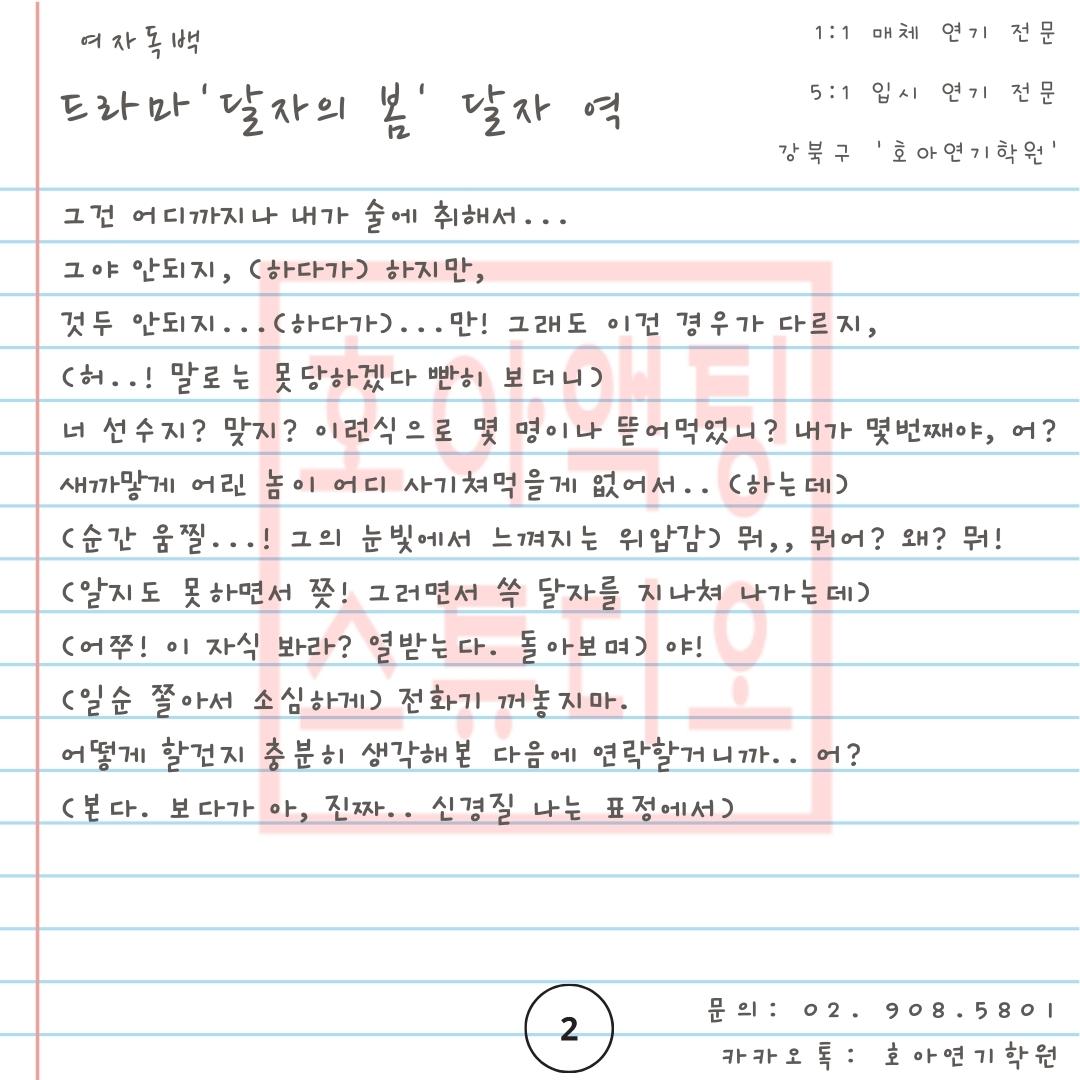 여자독백
드라마'달자의 봄' 달자 역
1:1 매체 연기 전문
5:1 입시 연기 전문
강북구 '호아연기학원'
그건 어디까지나 내가 술에 취해서...
그야 안되지, (하다가) 하지만,
것두 안되지...(하다가)...만! 그래도 이건 경우가 다르지,
(허..! 말로는 못당하겠다 빤히 보더니)
너 선수지? 맞지? 이런식으로 몇 명이나 뜯어먹었니? 내가 몇번째야, 어?
새까맣게 어린 놈이 어디 사기쳐먹을게 없어서.. (하는데)
(순간 움찔...! 그의 눈빛에서 느껴지는 위압감) 뭐,, 뭐어? 왜? 뭐!
(알지도 못하면서 쯧! 그러면서 쓱 달자를 지나쳐 나가는데)
(어쭈! 이 자식 봐라? 열받는다. 돌아보며) 야!
(일순 쫄아서 소심하게) 전화기 꺼놓지마.
어떻게 할건지 충분히 생각해본 다음에 연락할거니까.. 어?
(본다. 보다가 아, 진짜.. 신경질 나는 표정에서)
호아액팅
스튜디오
2
문의: 02. 908.5801
카카오톡: 호아연기학원